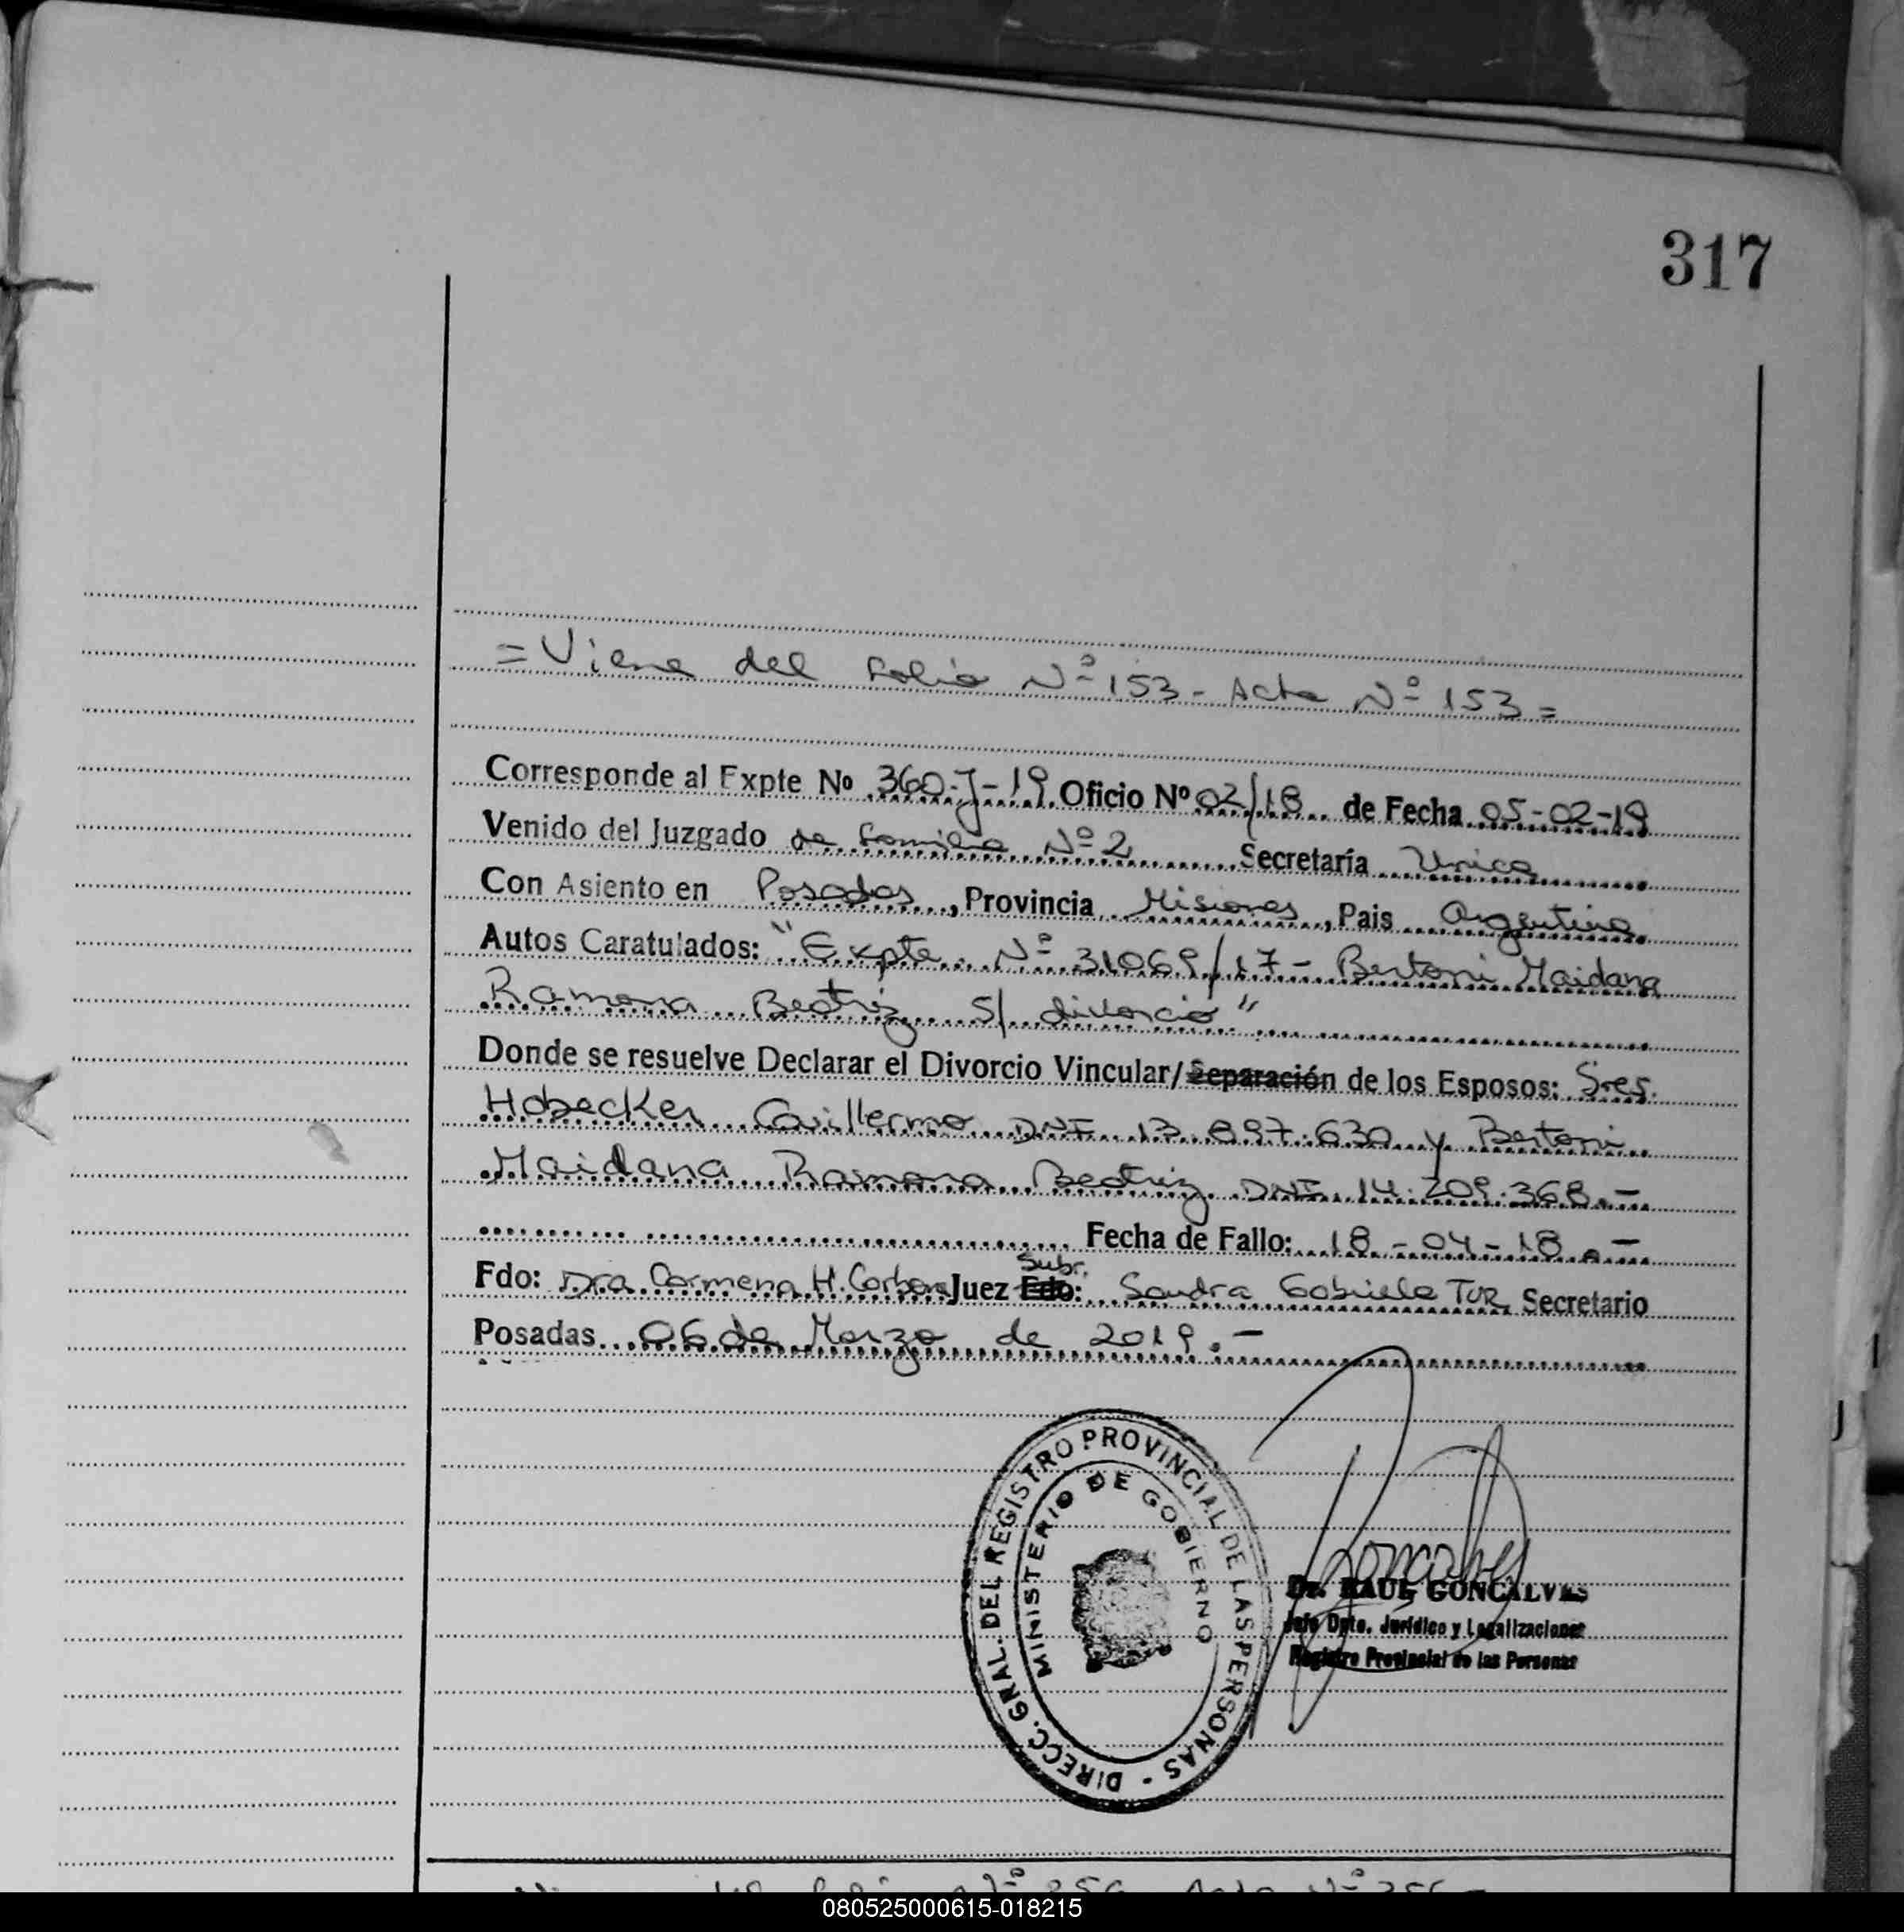 317
= Viene del Folio Nº 153 - Acta Nº 153 =
Corresponde al Expte Nº 360-J-19 Oficio Nº 02/18 de Fecha 05-02-19
Venido del Juzgado de Familia Nº 2 Secretaría Unica
Con Asiento en Posadas, Provincia Misiones, Pais Argentina
Autos Caratulados: "Expte Nº 31069/17 - Bertoni Maidana
Ramona Beatriz S/ divorcio"
Donde se resuelve Declarar el Divorcio Vincular/Separación de los Esposos: Sres.
Hobecker Guillermo DNI 13.897.630 y Bertoni
Maidana Ramona Beatriz DNI 14.209.368.-
Fecha de Fallo: 18-04-18.-
Subr.
Fdo: Dra Carmena H. Carbone Juez Fdo: Sandra Gabriela TUR, Secretario
Posadas 06 de Marzo de 2019.-
DIRECC. GRAL. DEL REGISTRO PROVINCIAL DE LAS PERSONAS -
MINISTERIO DE GOBIERNO
Dr. RAUL GONCALVES
Jefe Dpto. Jurídico y Legalizaciones
Registro Provincial de las Personas
080525000615-018215